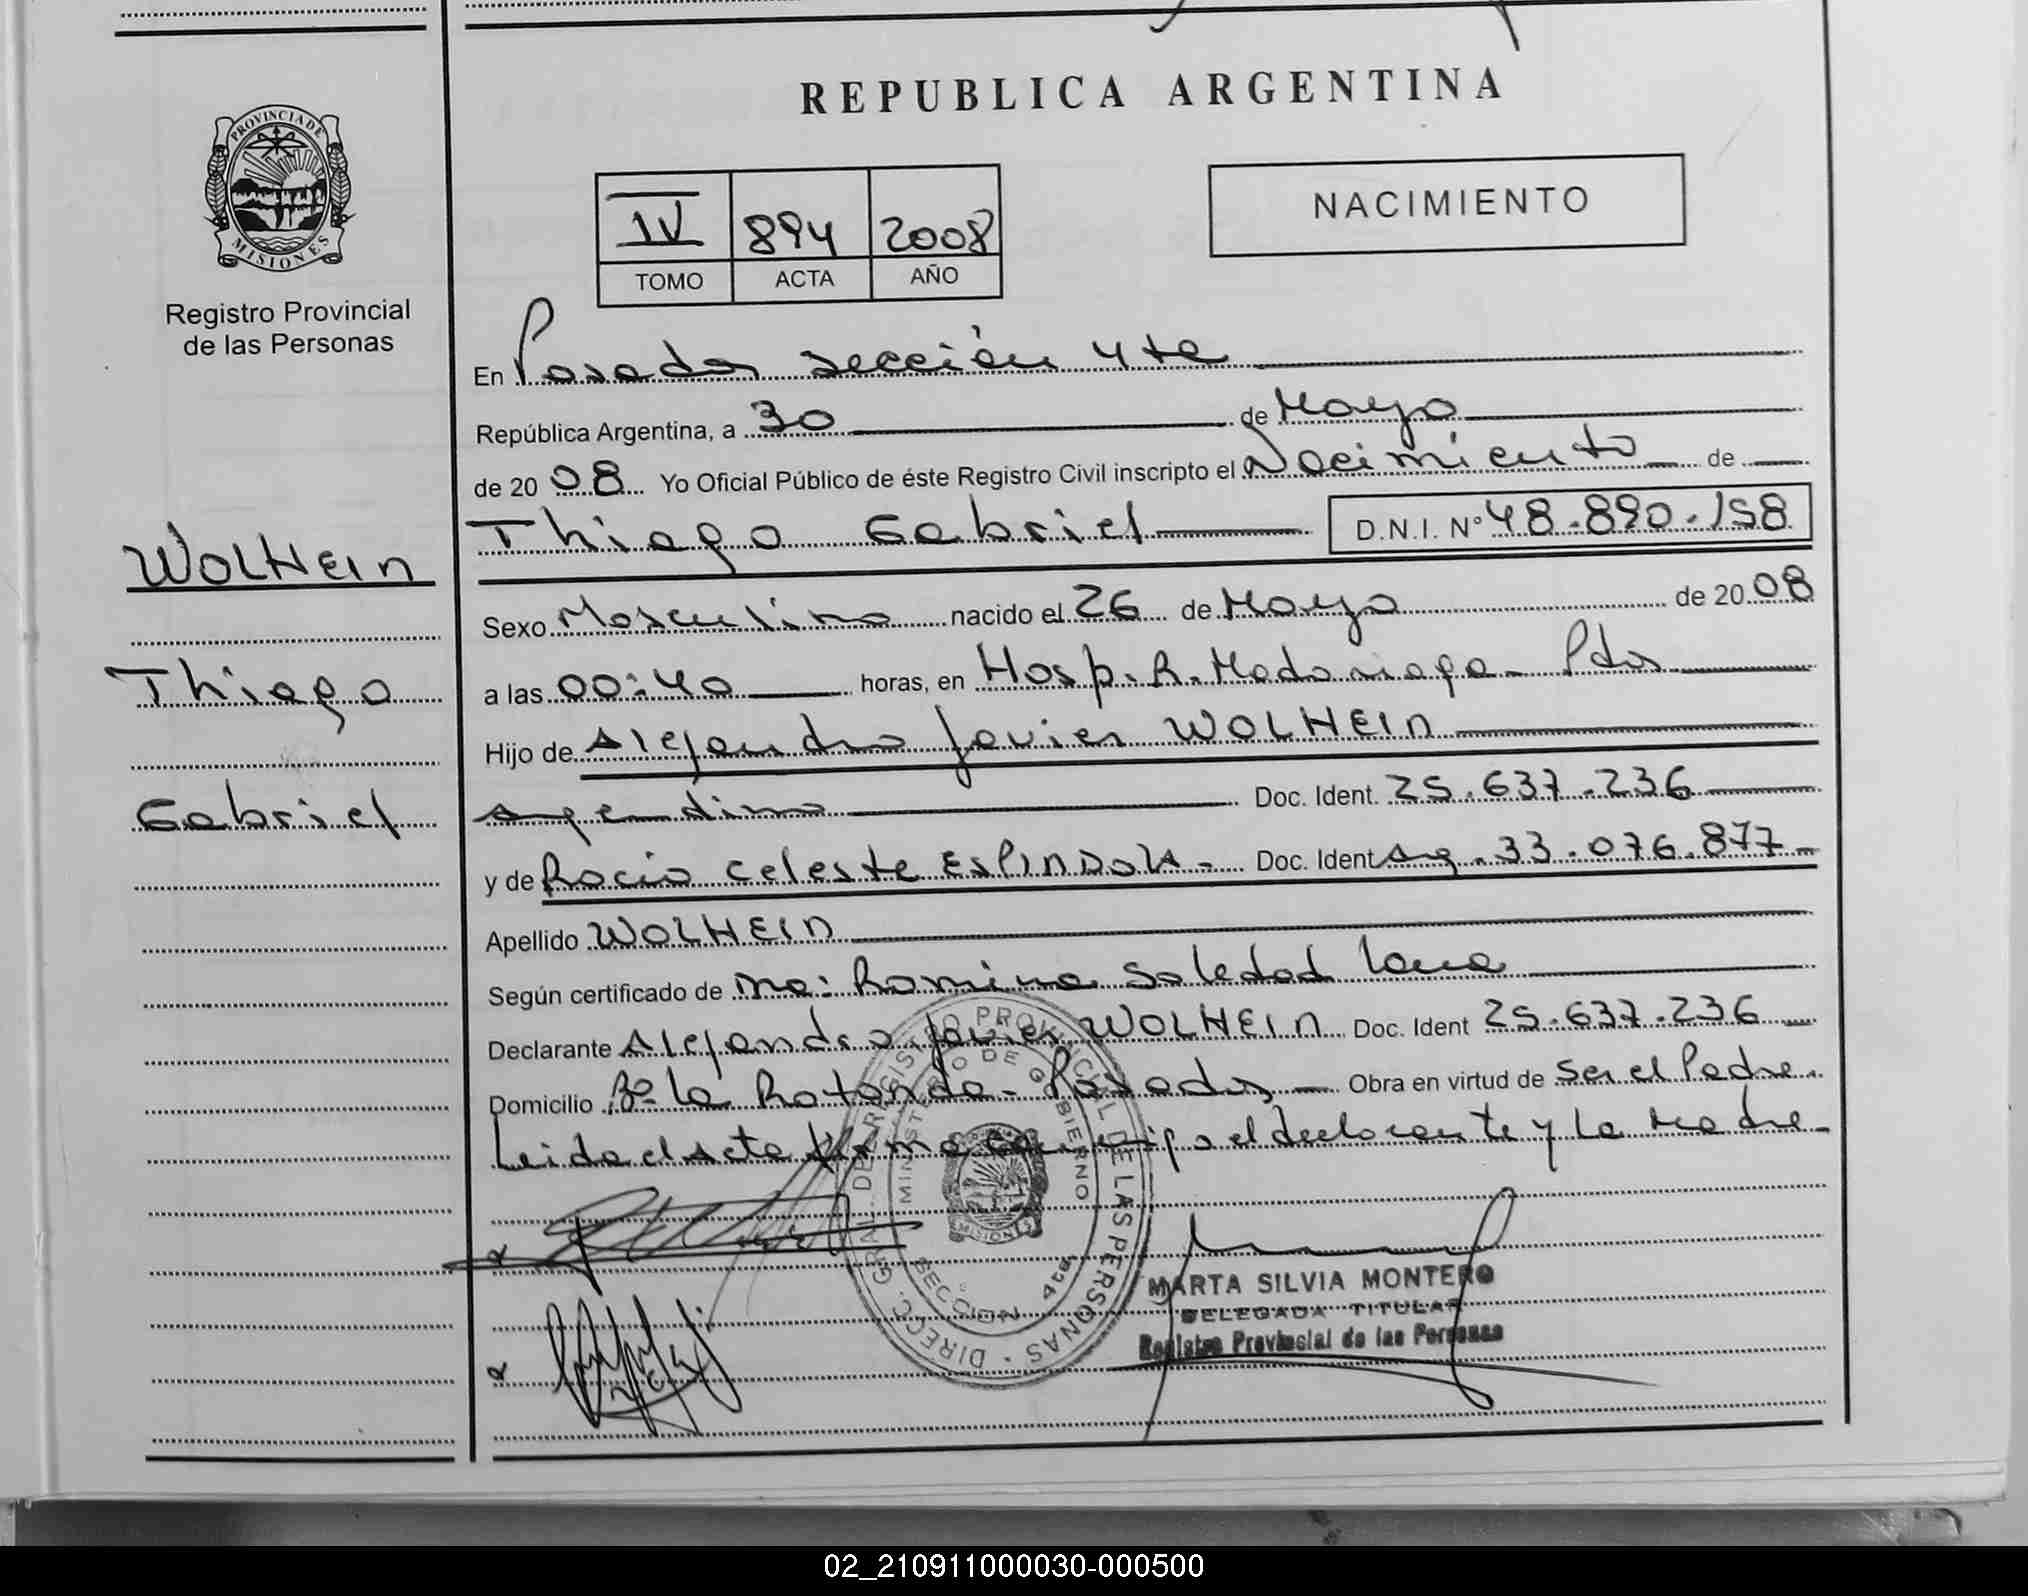 REPUBLICA ARGENTINA
PROVINCIA DE
MISIONES
Registro Provincial
de las Personas
IV 894 2008
TOMO ACTA AÑO
NACIMIENTO
En Posadas sección 4ta
República Argentina, a 30 de Mayo
de 2008 Yo Oficial Público de éste Registro Civil inscripto el Nacimiento de
Thiago Gabriel D.N.I. N° 48.890.158
WOLHEIN
Thiago
Gabriel
Sexo Masculino nacido el 26 de Mayo de 2008
a las 00:40 horas, en Hosp. R. Madariaga - Pdas
Hijo de Alejandro Javier WOLHEIN
Argentino Doc. Ident. 25.637.236
y de Rocio Celeste ESPINDOLA - Doc. Ident Arg. 33.076.877 -
Apellido WOLHEIN
Según certificado de Romina Soledad
Declarante Alejandro Javier WOLHEIN Doc. Ident 25.637.236
Domicilio B° La Rotonda - Posadas Obra en virtud de Ser el Padre.
Leida el Acta firma conmigo el declarante y la Madre -
DIRECC. GRAL. DE REGISTRO PROVINCIAL DE LAS PERSONAS
MINISTERIO DE GOBIERNO
SECCION 4ta
MISIONES
MARTA SILVIA MONTERO
DELEGADA TITULAR
Registro Provincial de las Personas
02_210911000030-000500